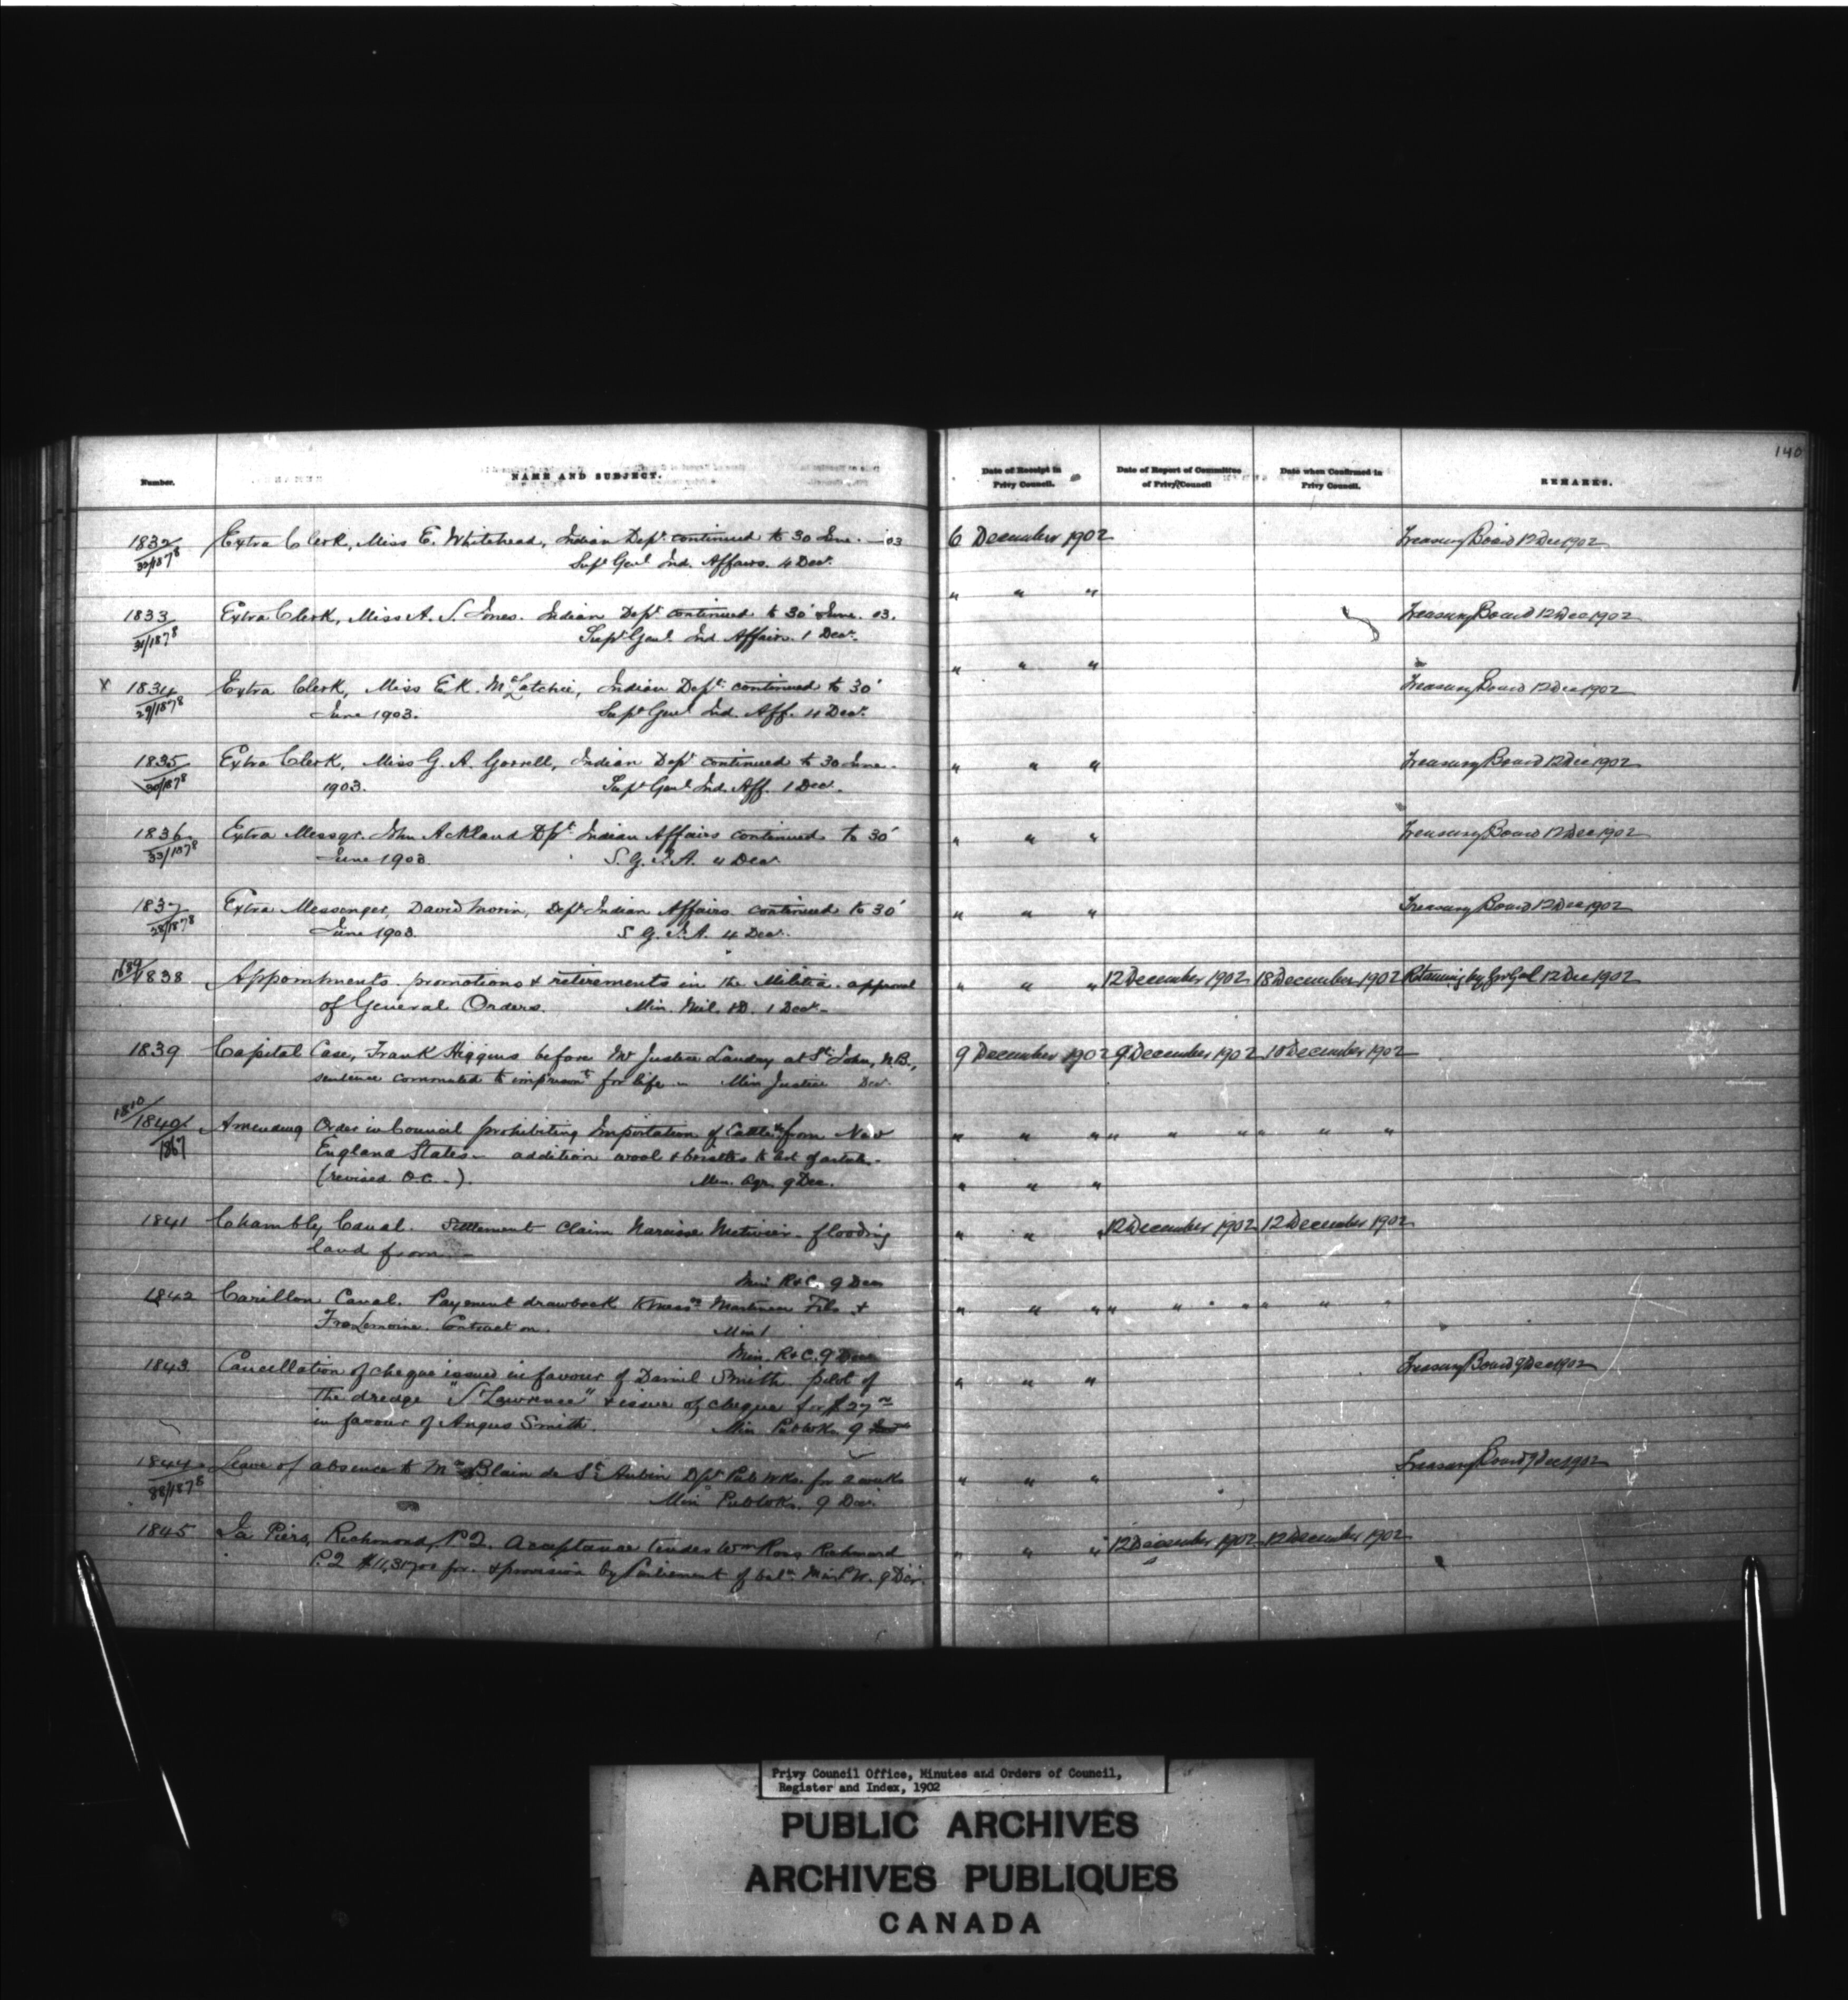 140
Number.
NAME AND SUBJECT.
Date of Receipt in Privy Council.
Date of Report of Committee of Privy Council
Date when Confirmed in Privy Council.
REMARKS.
1832 Extra Clerk, Miss E. Whitehead, Indian Dept. continued to 30 June. 03 6 December 1902 Treasury Board 12 Dec 1902
32/1878 Supt Genl Ind. Affairs. 4 Decr.
" " "
1833 Extra Clerk, Miss A. S. Jones. Indian Dept continued to 30' June. 03. Treasury Board 12 Dec 1902
31/1878 Supt Genl Ind Affairs. 1 Decr.
" " "
X 1834 Extra Clerk, Miss E K. McLatchie, Indian Dept. continued to 30' Treasury Board 12 Dec 1902
29/1878 June 1903. Supt Genl Ind. Aff. 4 Decr.
1835 Extra Clerk, Miss G. A. Gorrell, Indian Dept continued to 30 June. " " " Treasury Board 12 Dec 1902
30/1878 1903. Supt Genl Ind. Aff. 1 Decr.
1836 Extra Messgr. John Ackland Dpt. Indian Affairs continued to 30' " " Treasury Board 12 Dec 1902
33/1878 June 1903. S. G. I. A. 4 Decr.
1837 Extra Messenger, David Morin, Dept Indian Affairs continued to 30' " " " Treasury Board 12 Dec 1902
28/1878 June 1903. S. G. I. A. 4 Decr.
1838 Appointments. promotions & retirements in the Militia. approval " " " 12 December 1902 18 December 1902 12 Dec 1902
of General Orders. Min. Mil. & D. 1 Decr.
1839 Capital Case, Frank Higgins before Mr Justice Landry at St. John, N.B., 9 December 1902 9 December 1902 10 December 1902
sentence commuted to imprisont for life Min Justice Decr
1810/
1840 Amending Order in Council prohibiting Importation of Cattle &c from New " " " " " " " " "
1867 England States. addition wool & bristles to
(revised O.C.). Min. Agr. 9 Dec. " " "
1841 Chambly Canal. Settlement Claim Narcisse Metivier. flooding " " " 12 December 1902 12 December 1902
land from
Min R&C. 9 Dec
1842 Carillon Canal. Payment drawback to Messrs Martineau Fils & " " " " " " " " "
Contract on. Min
Min. R&C. 9 Decr
1843 Cancellation of cheque issued in favour of Daniel Smith pilot of " " " Treasury Board 9 Dec 1902
the dredge "St Lawrence" & issue of cheque for $27
in favour of Angus Smith. Min Pub Wks. 9
1844 Leave of absence to Mr Blain de St. Aubin Dpt Pub Wks. for 2 weeks " " " Treasury Board 9 Dec 1902
88/1878 Min Pub Wks. 9 Decr.
1845 Richmond, P.Q. Acceptance tender Wm Ross Richmond " " " 12 December 1902 12 December 1902
P.Q for. & provision by Parliament of baln. Min P.W. 9 Decr.
Privy Council Office, Minutes and Orders of Council,
Register and Index, 1902
PUBLIC ARCHIVES
ARCHIVES PUBLIQUES
CANADA